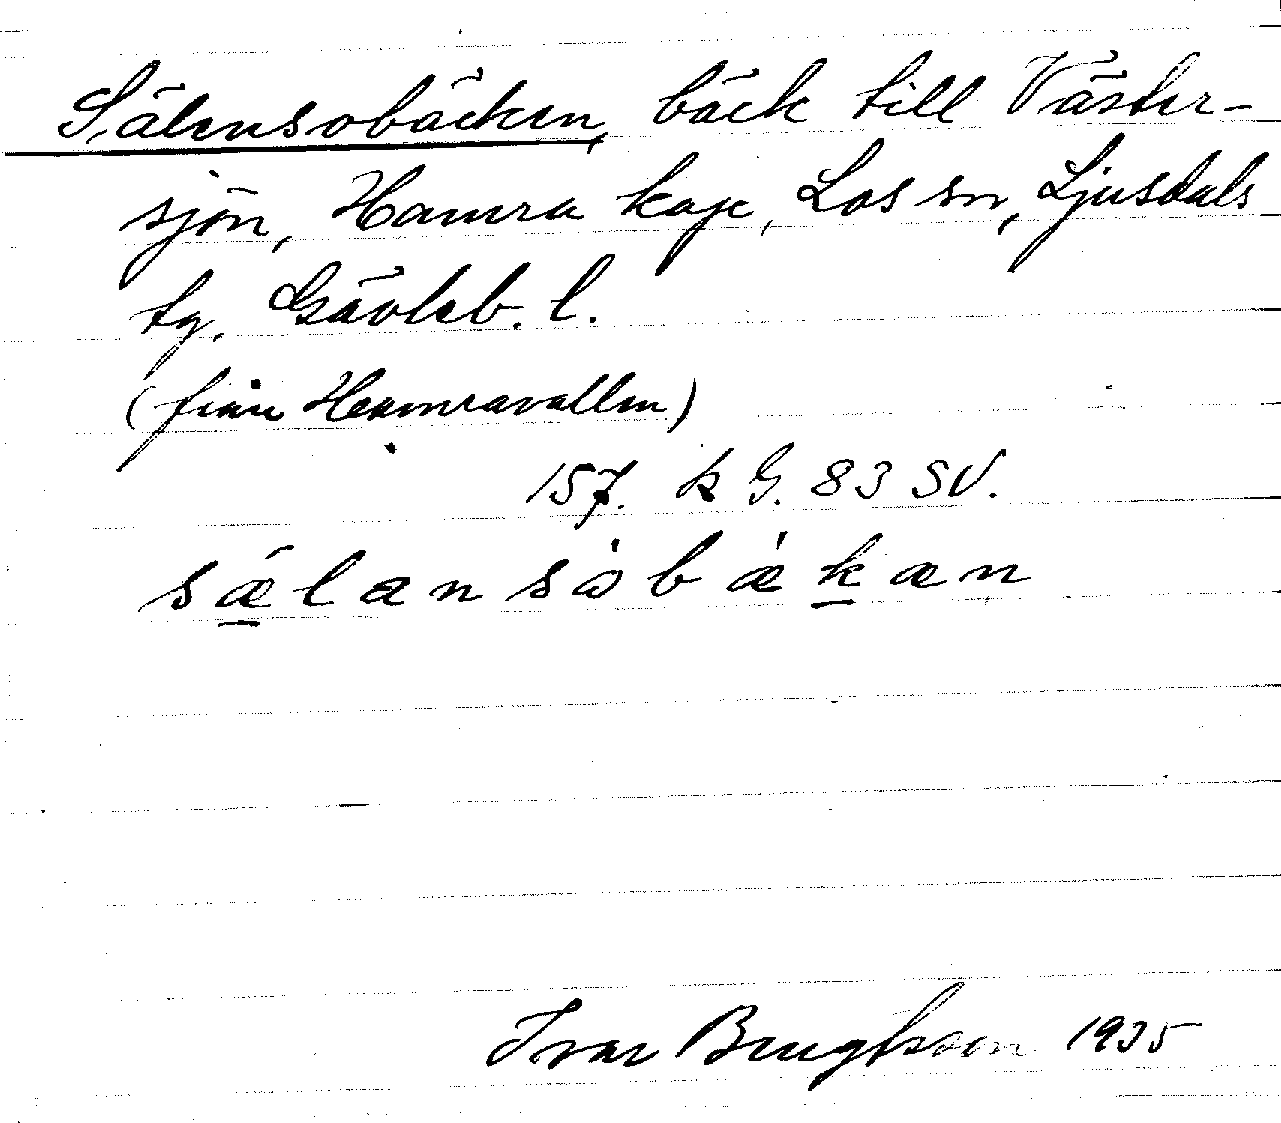 Sälensobäcken, bäck till Väster-
sjön, Hamra kap, Los sn, Ljusdals
tg. Gävleb. l.
(från Hamravallen)
157. k G. 83 SV.
sælansòbækæn
Ivar Bengtsson 1935